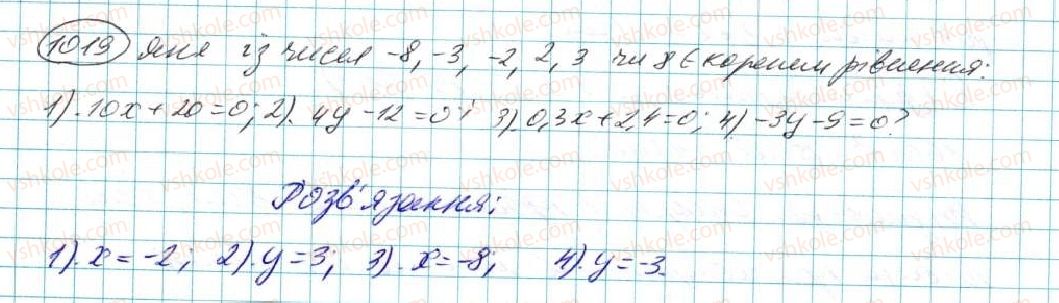 1019 яке із чисел -8, -3, -2, 2, 3 чи 8 є коренем рівняння:
1). 10x + 20 = 0; 2). 4y - 12 = 0; 3). 0,3x + 2,4 = 0; 4) -3y - 9 = 0?
Розв'язання:
1). x = -2; 2). y = 3; 3). x = -8; 4). y = -3.